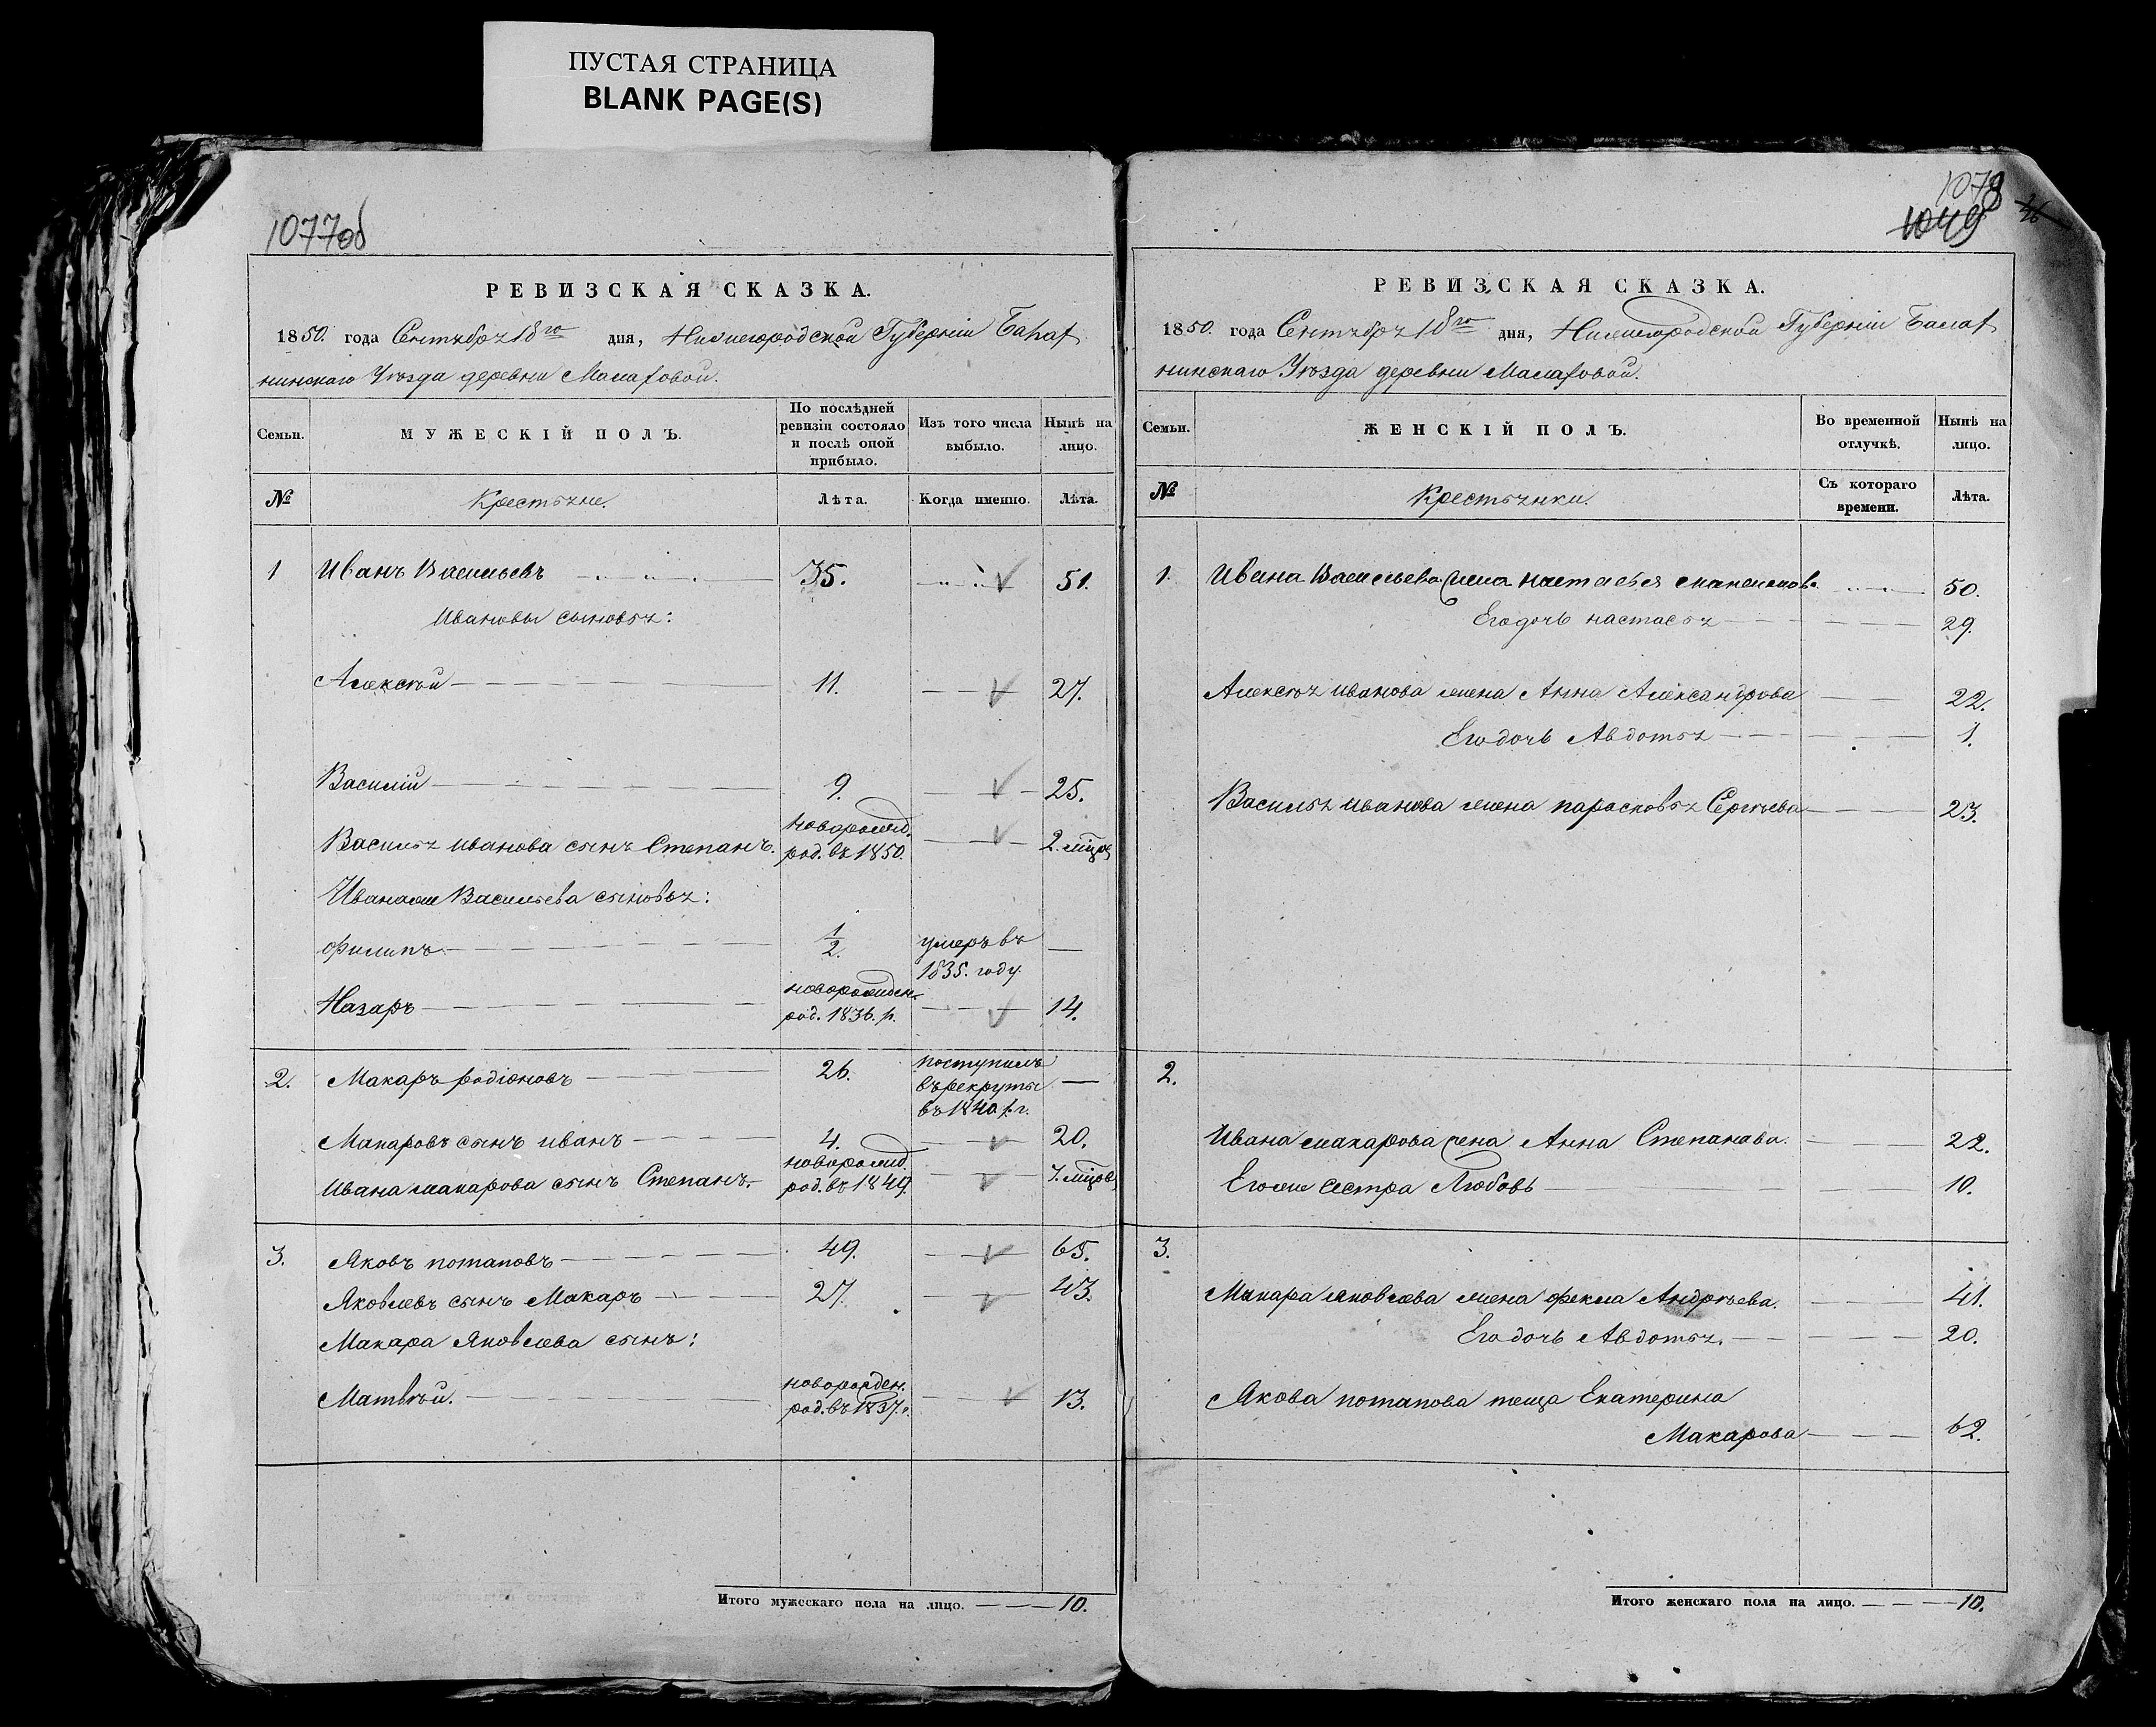 ПУСТАЯ СТРАНИЦА
BLANK PAGE(S)
1077об
РЕВИЗСКАЯ СКАЗКА.
1850. года Сентября 18го дня, Нижегородской Губерніи Балах
нинскаго Уѣзда деревни Малаховой.
Семьи.
МУЖЕСКІЙ ПОЛЪ.
По послѣдней ревизіи состояло и послѣ оной прибыло.
Изъ того числа выбыло.
Нынѣ на лицо.
№ Крестьяне. Лѣта. Когда именно. Лѣта.
1 Иванъ Васильевъ 35. 51.
Ивановы сыновья:
Алексѣй 11. 27.
Василій 9. 25.
Василья Иванова сынъ Степанъ. новорожд. род. въ 1850. 2. мѣцов
Иванаже Васильева сыновья:
Филипъ 1/2. умеръ въ 1835. году —
Назаръ новорожден. род. 1836. г. 14.
2. Макаръ Родіоновъ 26. поступилъ въ рекруты въ 1840 г. —
Макаровъ сынъ Иванъ 4. 20.
Ивана Макарова сынъ Степанъ. новорожд. род. въ 1849. 7. мѣцов
3. Яковъ Потаповъ 49. 65.
Яковлевъ сынъ Макаръ 27. 43.
Макара Яковлева сынъ:
Матвѣй. новорожден. род. въ 1837. г. 13.
Итого мужескаго пола на лицо. 10.
1078
1049
РЕВИЗСКАЯ СКАЗКА.
1850. года Сентября 18го дня, Нижегородской Губерніи Балах
нинскаго Уѣзда деревни Малаховой.
Семьи.
ЖЕНСКІЙ ПОЛЪ.
Во временной отлучкѣ.
Нынѣ на лицо.
№ Крестьянки. Съ котораго времени. Лѣта.
1. Ивана Васильева жена Настасья 50.
Его дочь Настасья 29.
Алексѣя Иванова жена Анна Александрова 22.
Его дочь Авдотья 1.
Василья Иванова жена Парасковья Сергѣева 23.
2.
Ивана Макарова жена Анна Степанава. 22.
Егоже сестра Любовь 10.
3.
Макара Яковлева жена Фекла Андрѣева. 41.
Его дочь Авдотья. 20.
Якова Потапова теща Екатерина
Макарова 62.
Итого женскаго пола на лицо. 10.